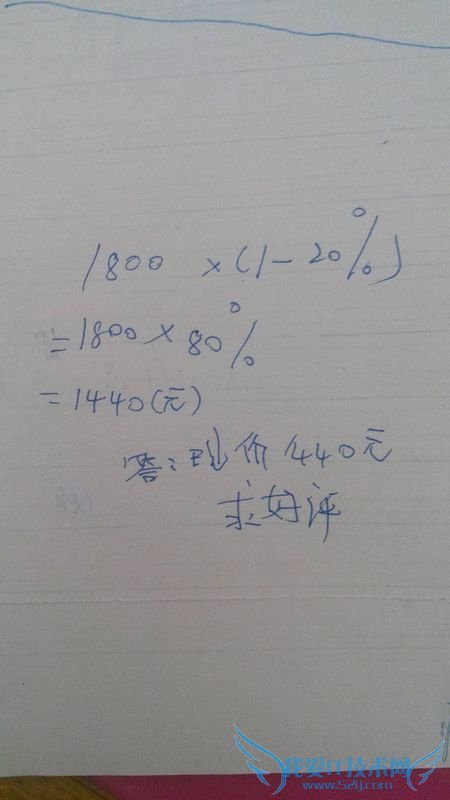 1800 ×(1-20%)
=1800×80%
=1440(元)
答:现价1440元
求好评
我爱IT技术网
www.52ij.com